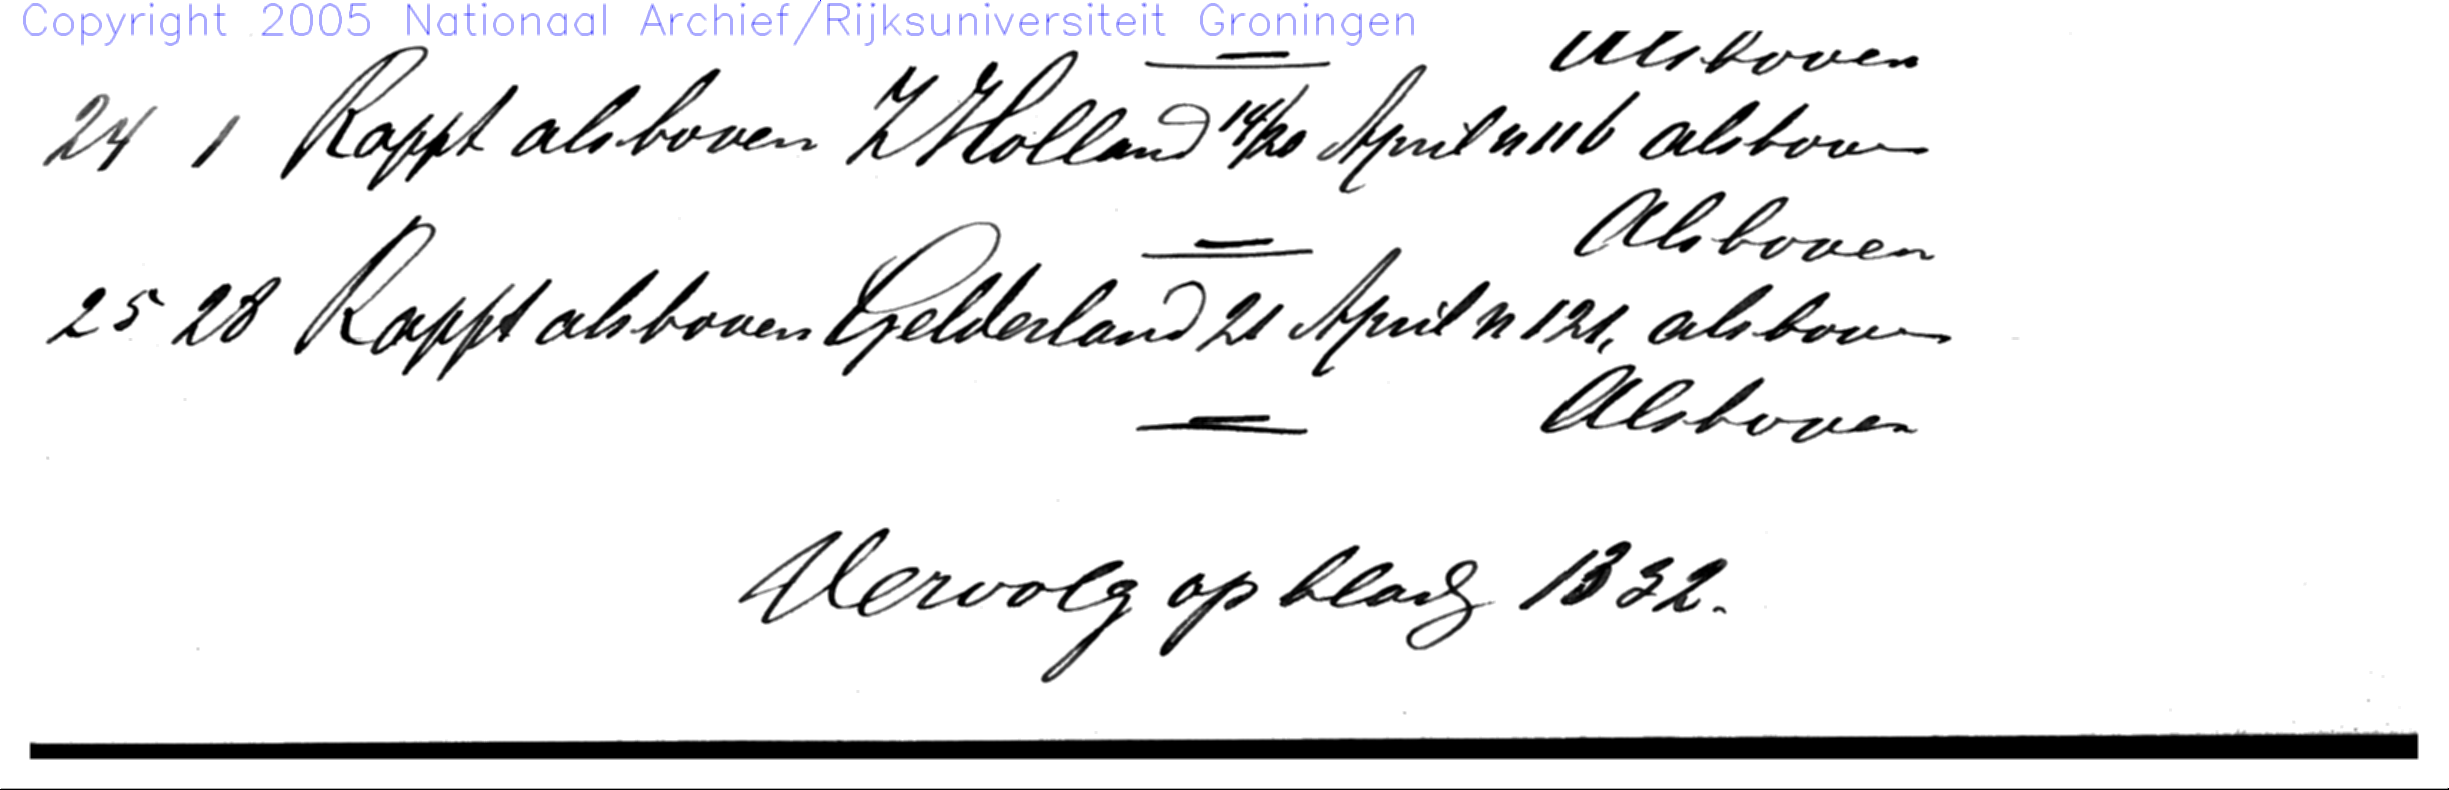 Copyright 2005 Nationaal Archief/Rijksuniversiteit Groningen
Alsboven
24 1 Rappt alsboven ZHolland 14/20 April n 116 alsboven
Alsboven
25 28 Rappt alsboven Gelderland 21 April n 121, alsboven
Alsboven
Vervolg op bladz 1332.